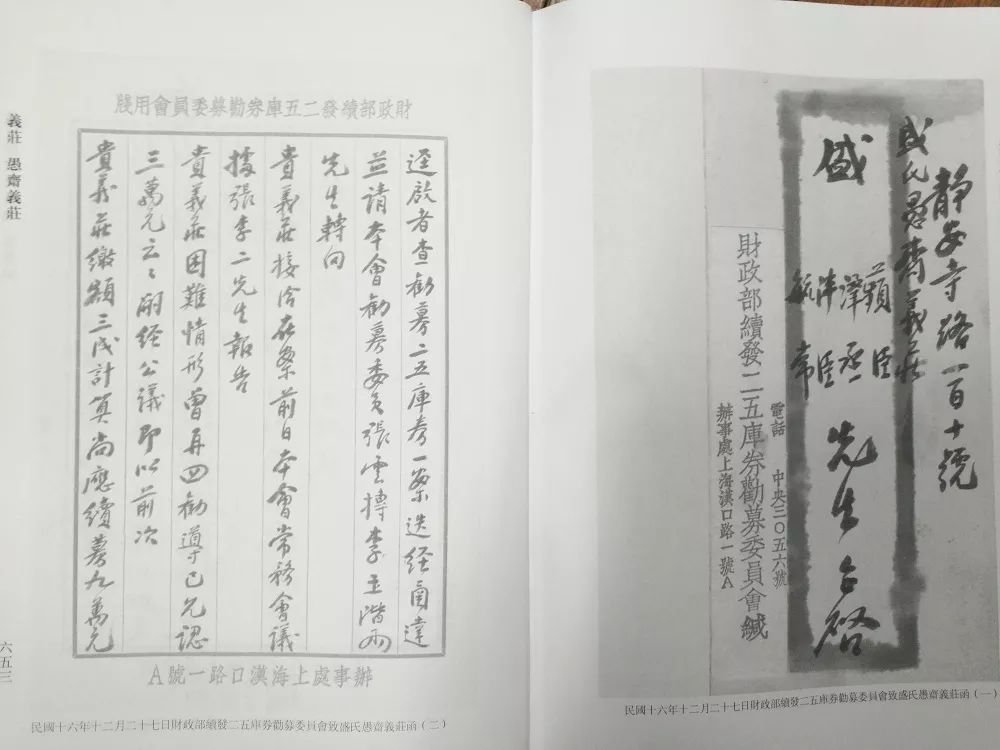 靜安寺路一百十號
盛氏愚齋義莊
蘋臣
澤丞
泮臣
毓常
盛
先生台啓
電話 中央三〇五六號
財政部續發二五庫券勸募委員會緘
辦事處上海漢口路一號A
民國十六年十二月二十七日財政部續發二五庫券勸募委員會致盛氏愚齋義莊函(一)
財政部續發二五庫券勸募委員會用牋
逕啟者查勸募二五庫券一案迭經函達
並請本會勸募委員張雲摶李孟階兩
先生轉向
貴義莊接洽在案前日本會常務會議
據張李二先生報告
貴義莊困難情形曾再四勸導已允認
三萬元云云嗣經公議即以前次
貴義莊繳額三成計算尚應續募九萬元
辦事處上海漢口路一號A
民國十六年十二月二十七日財政部續發二五庫券勸募委員會致盛氏愚齋義莊函(二)
義莊 愚齋義莊
六五三